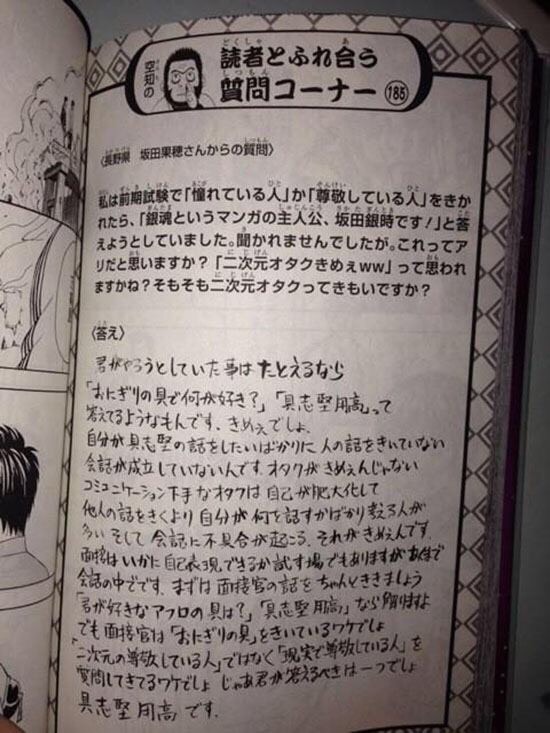 空知の
読者とふれ合う
質問コーナー 185
〈長野県 坂田果穂さんからの質問〉
私は前期試験で「憧れている人」か「尊敬している人」をきか
れたら、「銀魂というマンガの主人公、坂田銀時です!」と答
えようとしていました。聞かれませんでしたが。これってア
リだと思いますか?「二次元オタクきめぇww」って思われ
ますかね?そもそも二次元オタクってきもいですか?
〈答え〉
君がやろうとしていた事はたとえるなら
「おにぎりの具で何が好き?」「具志堅用高」って
答えてるようなもんです、きめぇでしょ。
自分が具志堅の話をしたいばかりに人の話をきいていない
会話が成立していないんです。オタクがきめぇんじゃない
コミュニケーション下手なオタクは自己が肥大化して
他人の話をきくより自分が何を話すかばかり考える人が
多い そして会話に不具合が起こる。それがきめぇんです。
面接はいかに自己表現できるか試す場でもありますがあくまで
会話の中でです。まずは面接官の話をちゃんとききましょう
「君が好きなアフロの具は?」「具志堅用高」なら解りますよ
でも面接官は「おにぎりの具」をきいているワケでしょ
「二次元の尊敬している人」ではなく「現実で尊敬している人」を
質問してきてるワケでしょ じゃあ君が答えるべきは一つでしょ
具志堅用高です。